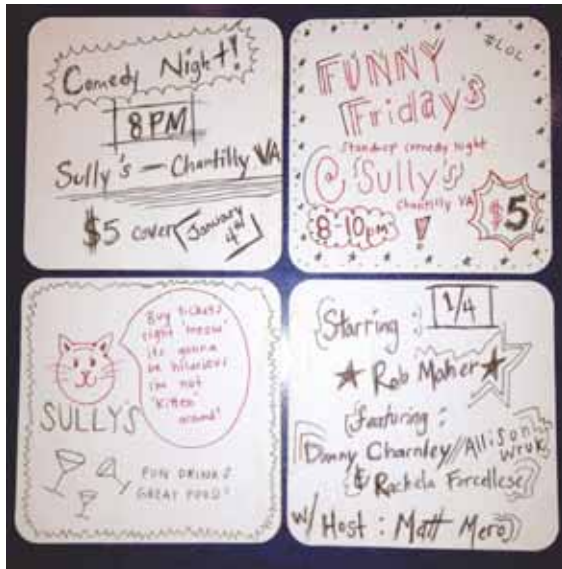 Comedy Night!
8PM
Sully's — Chantilly VA
$5 cover
January
4th
#LOL
FUNNY
Friday's
Standup comedy night
@ Sully's
Chantilly VA
8-10pm
!
$5
Buy tickets
right 'meow'
its gonna
be hilarious
im not
'kitten'
around!
SULLYS
FUN DRINKS
GREAT FOOD!
1/4
Starring :
Rob Maher
featuring :
Danny Charnley // Allison
Wruk
& Rachela Forcellese
w/ Host : Matt Mero